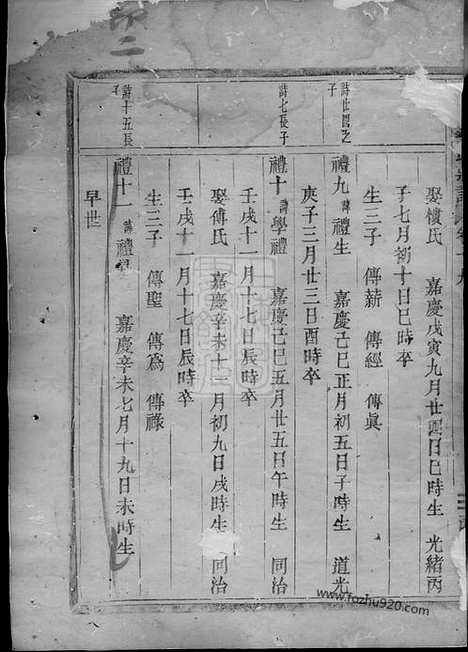 娶樓氏 嘉慶戊寅九月廿四日巳時生 光緒丙
子七月初十日巳時卒
生三子 傳薪 傳經 傳眞
禮九 諱禮生 嘉慶己巳正月初五日子時生 道光
庚子三月廿三日酉時卒
禮十 諱學禮 嘉慶己巳五月廿五日午時生 同治
壬戌十一月十七日辰時卒
娶傅氏 嘉慶辛未十二月初九日戌時生 同治
壬戌十一月十七日辰時卒
生三子 傳聖 傳爲 傳祿
禮十一 諱禮 嘉慶辛未七月十九日未時生
早世
詩七長子
詩十五長
子
www.fozhu920.com